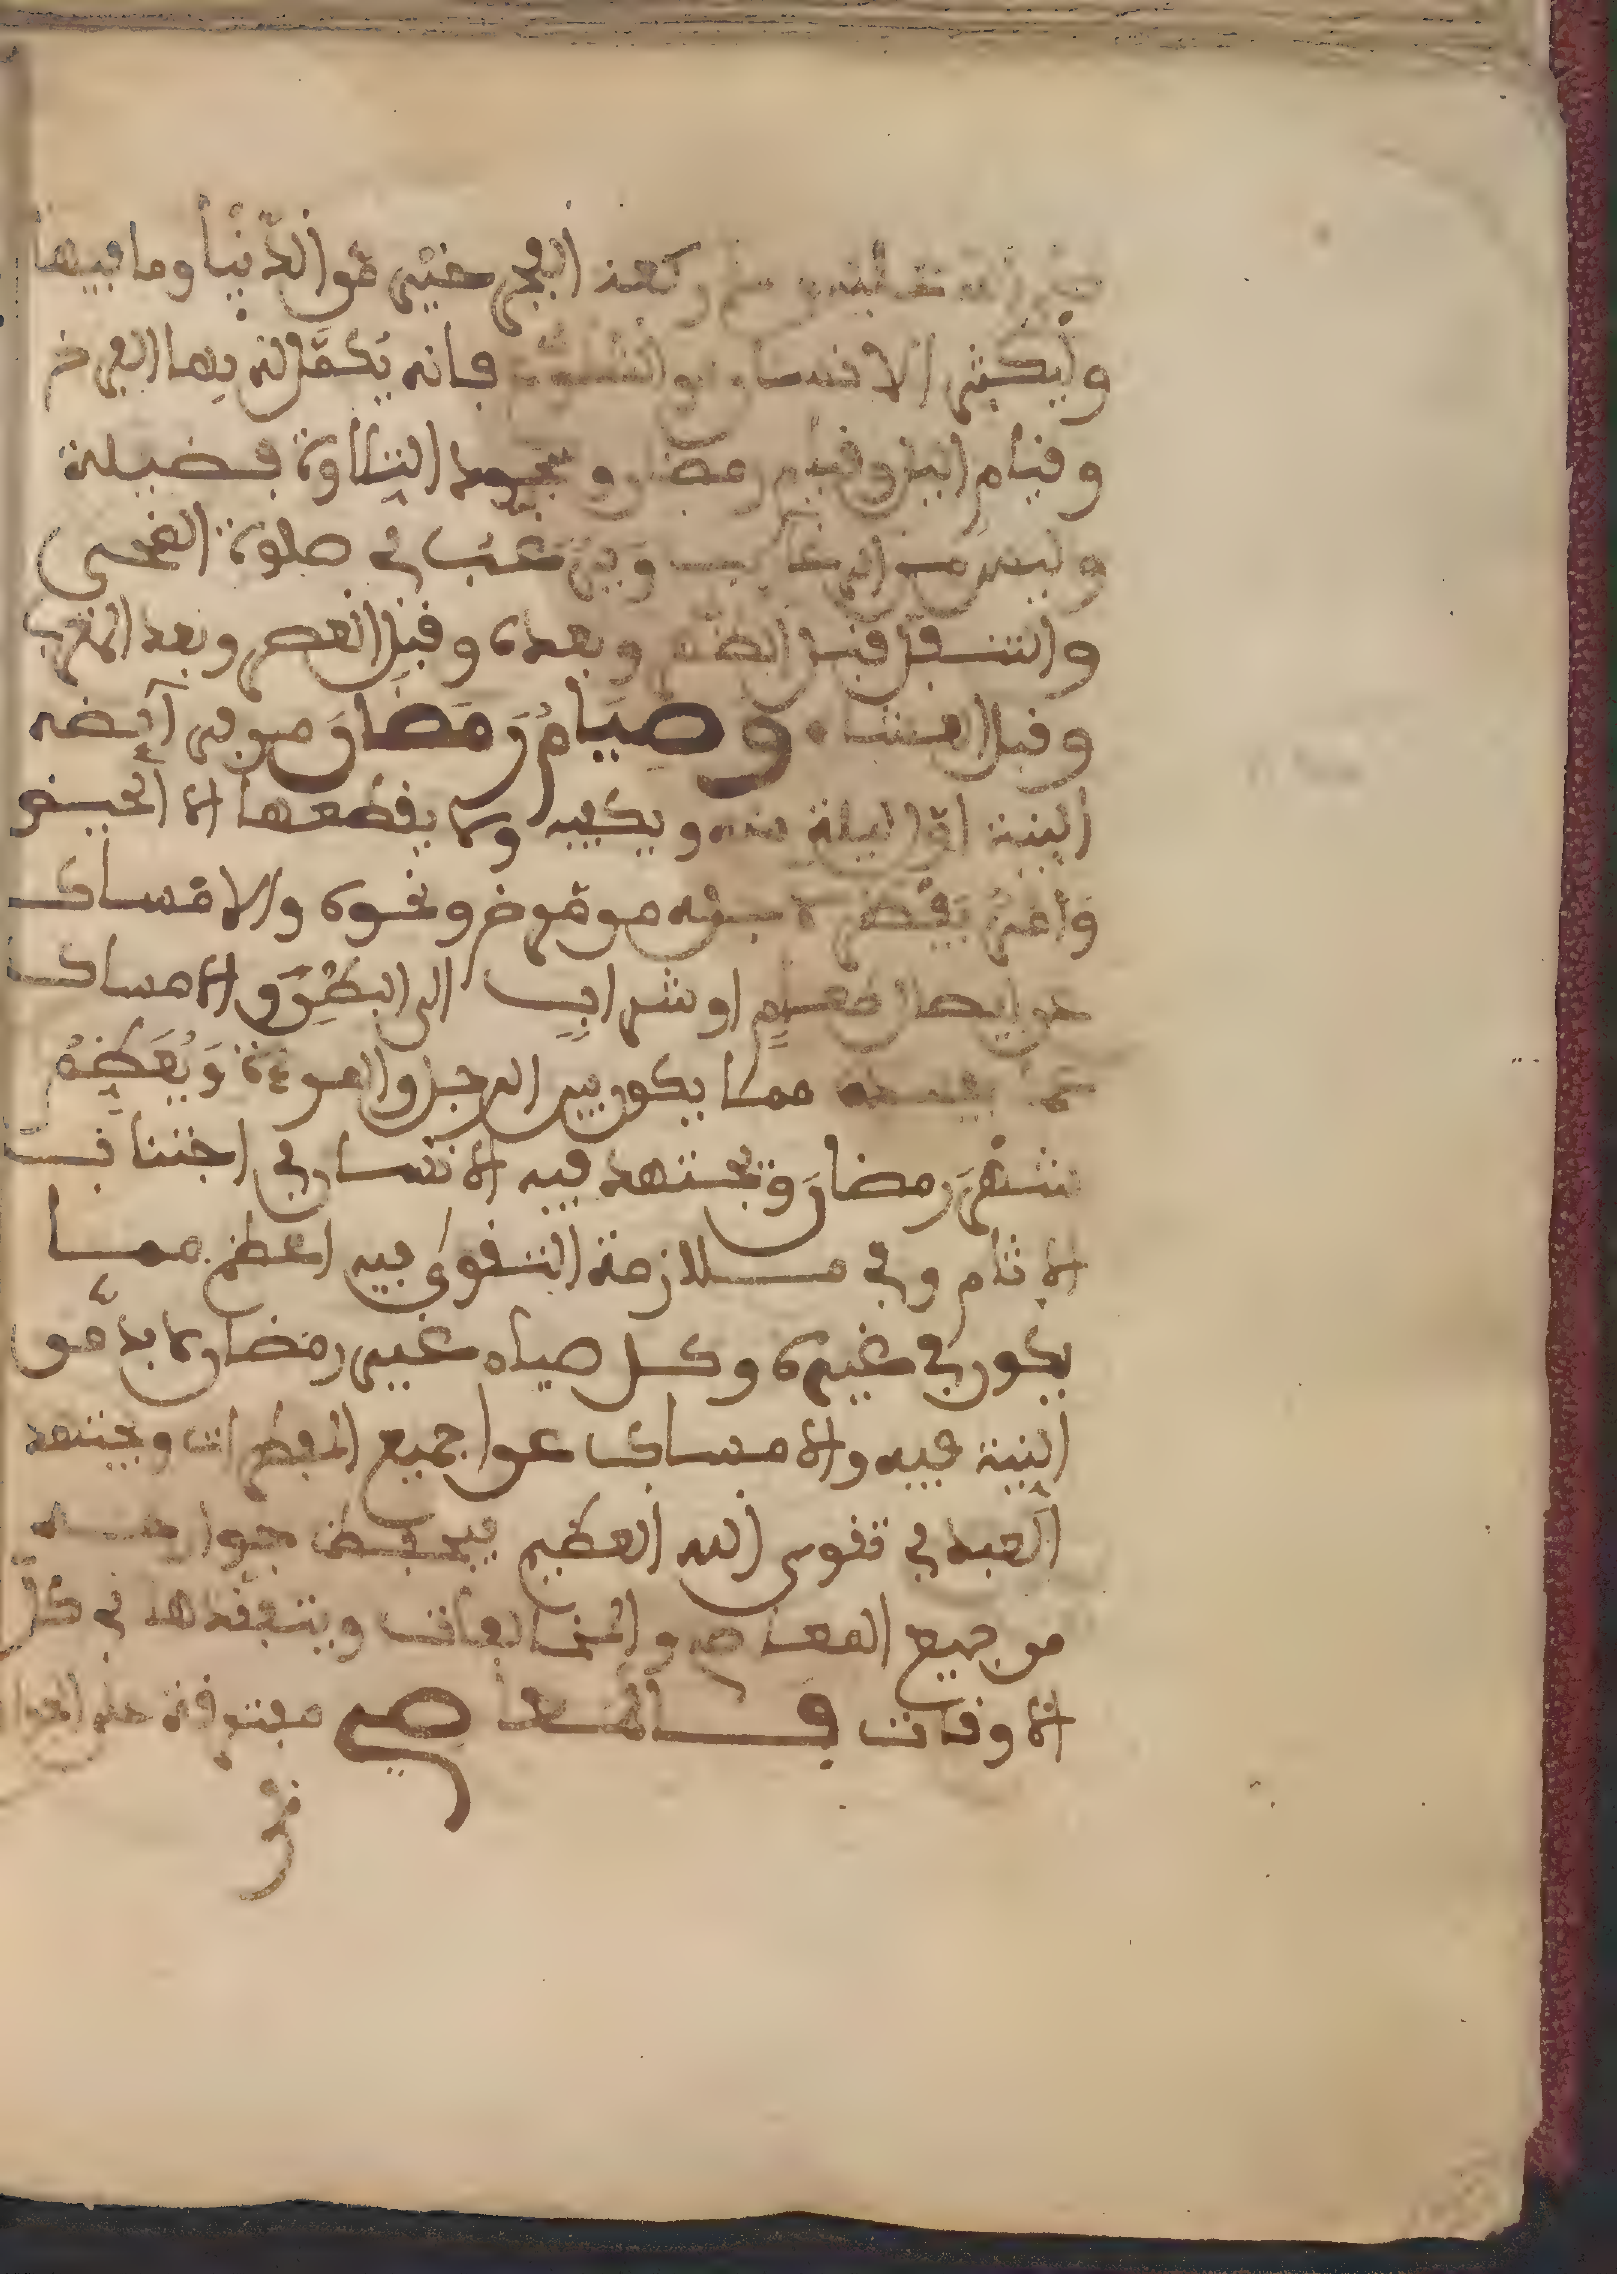 صلى الله عليه وسلم ركعة الفجر خير من الدنيا وما فيها
وليكثر الانسان من التطوع فانه يكمل له بها الفرض
وقيام اليل وقيام رمضان وسجود التلاوة فضيلة
وليس من الرغايب ويرغب في صلوة الضحى
والتنفل قبل الظهر وبعده وقبل العصر وبعد المغرب
وقبل العشاء وصيام رمضان من فرايضه
النية اول ليلة منه ويكفيه ولا يقطعها الا الحيض
او غير بفطره فيه من مرض ونحوه والامساك
عن ايصال طعام او شراب الى البطن والامساك
عما يفسده مما يكون بين الرجل والمرءة ويعظم
شهر رمضان ويجتهد فيه الانسان في اجتناب
الاثام وفي ملازمة التقوى فيه اعظم مما
يكون في غيره وكل صيام غير رمضان لا بد من
النية فيه والامساك عن جميع المفطرات ويجتهد
العبد في تقوى الله العظيم فيحفظ جوارحه
من جميع المعاصي والمخالفات ويتفقدها في كل
الاوقات فالمعاصي مفترقة على